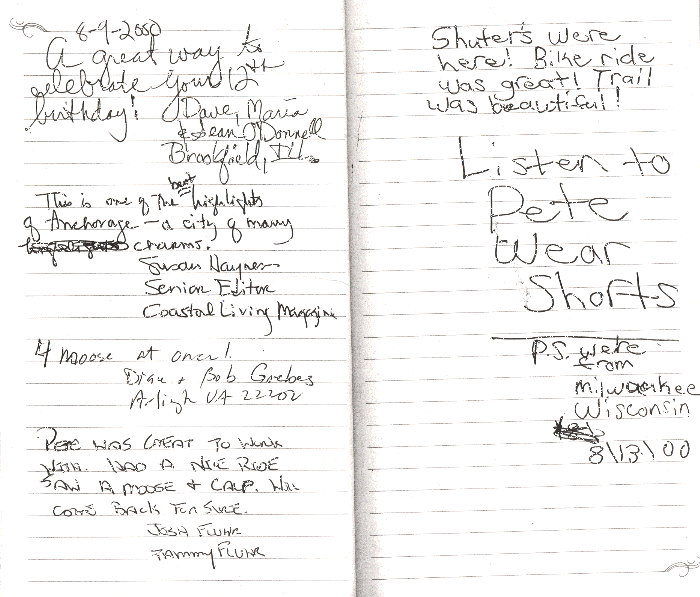 8-9-2000
A great way to
celebrate your 12th
birthday! Dave, Maria
& Sean O'Donnell
Brookfield, IL.
This is one of the best highlights
of Anchorage - a city of many
charms.
Susan Haynes
Senior Editor
Coastal Living Magazine
4 moose at once!
+ Bob
VA 22202
Pete was great to work
with. Had a nice ride
Saw a moose + calf. Will
come back for sure.
Josh Fluhr
Tammy Fluhr
Shuter's were
here! Bike ride
was great! Trail
was beautiful!
Listen to
Pete
Wear
Shorts
P.S. were
from
Milwaukee
Wisconsin
8\13\00